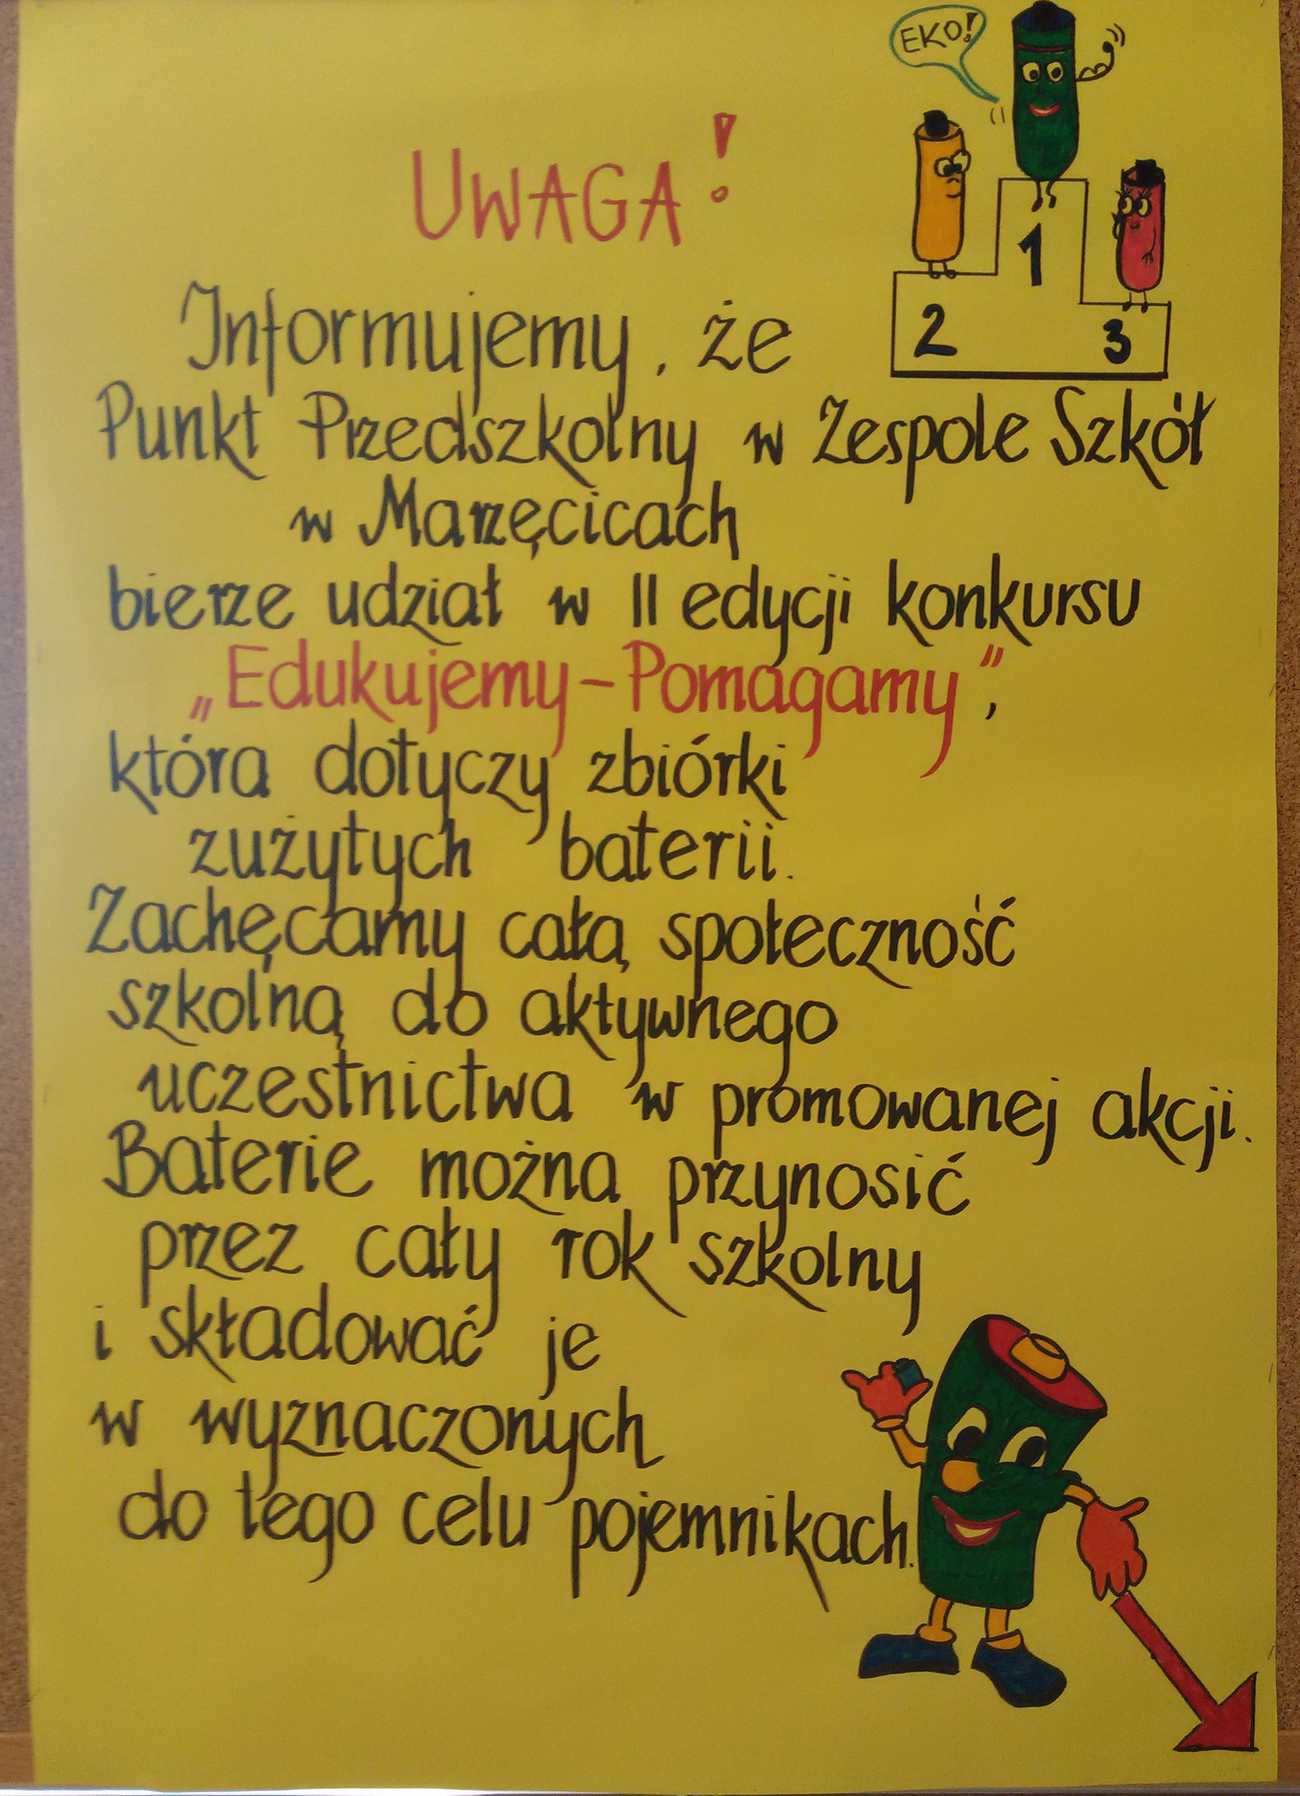 EKO!
UWAGA!
1
2
3
Informujemy, że
Punkt Przedszkolny w Zespole Szkół
w Marzęcicach
bierze udział w II edycji konkursu
„Edukujemy-Pomagamy",
która dotyczy zbiórki
zużytych baterii.
Zachęcamy całą społeczność
szkolną do aktywnego
uczestnictwa w promowanej akcji.
Baterie można przynosić
przez cały rok szkolny
i składować je
w wyznaczonych
do tego celu pojemnikach.